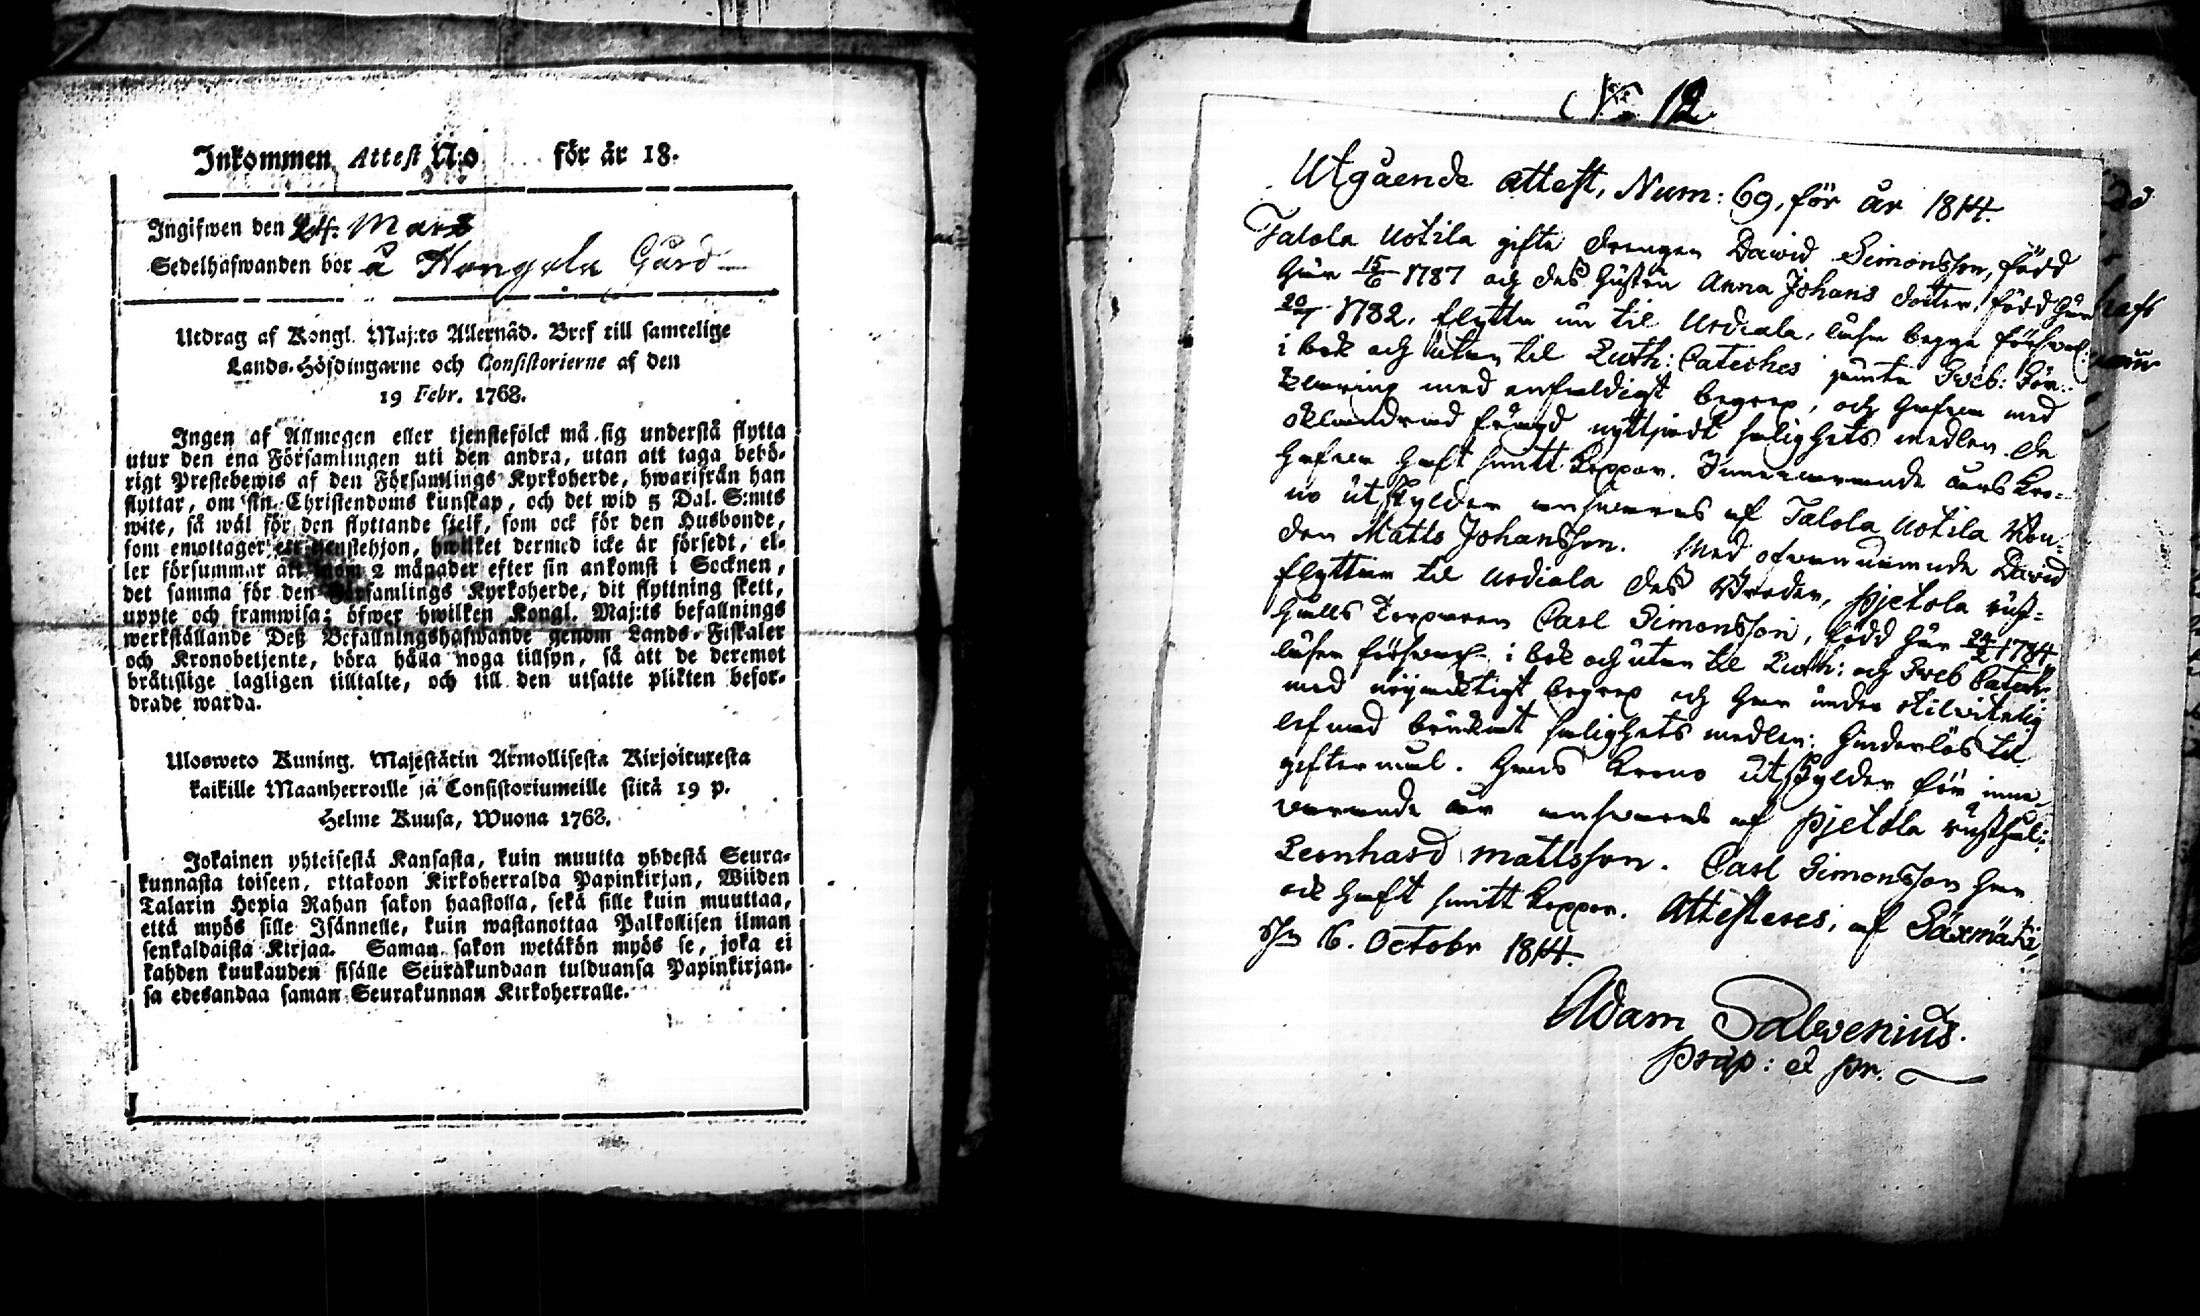 Inkommen Attest N:o för år 18.
Ingifwen den 24. Mars
Sedelhafwanden bor å Hongola Gård
Utdrag af Kongl. Maj:ts Allernåd. Bref till samtelige
Lands-Höfdingarne och Consistorierne af den
19 Febr. 1768.
Ingen af Allmogen eller tjenstefölck må sig understå flytta
utur den ena Församlingen uti den andra, utan att taga behö-
rigt Prestebewis af den Församlings Kyrkoherde, hwarifrån han
flyttar, om sin Christendoms kunskap, och det wid 5 Dal. S:mts
wite, så wäl för den flyttande sielf, som ock för den Husbonde,
som emottager ett tienstehjon, hwilket dermed icke är försedt, el-
ler försummar att inom 2 månader efter sin ankomst i Socknen,
det samma för den Församlings Kyrkoherde, dit flyttning skett,
uppte och framwisa; öfwer hwilken Kongl. Maj:ts befallnings
werkställande Deß Befallningshafwande genom Lands-Fiskaler
och Kronobetjente, böra hålla noga tillsyn, så att de deremot
brätislige lagligen tilltalte, och till den utsatte plikten befor-
drade warda.
Uloswето Kuning. Majestätin Armollisesta Kirjoituxesta
kaikille Maanherroille ja Consistoriumeille siitä 19 p.
Helme Kuusa, Wuona 1768.
Jokainen yhteisestä Kansasta, kuin muutta yhdestä Seura-
kunnasta toiseen, ottakoon Kirkoherralda Papinkirjan, Wiiden
Talarin Hopia Rahan sakon haastolla, sekä sille kuin muuttaa,
että myös sille Isännelle, kuin wastanottaa Palkollisen ilman
senkaldaista Kirjaa. Saman sakon wetäkön myös se, joka ei
kahden kuukauden sisälle Seurakundaan tulduansa Papinkirjan-
sa edesandaa saman Seurakunnan Kirkoherralle.
No 12
Utgående attest, Num: 69, för år 1814
Talola Uotila gifte drengen David Simonsson, född
här 15/6 1787 och deß hustru Anna Johans dotter, född här
20/1 1782, flytta nu til Urdiala, läsa begge försvarl:
i bok och utan til Luth: Cateches jämte Sveb: För-
klaring med enfaldigt begrep, och hafva med
oklandrad frägd nyttjadt salighets medlen. De
hafva haft smitt koppor. Innevarande års Kro-
no utskylder ansvaras af Talola Uotila Bon-
den Matts Johansson. Med ofvannämnde David
flyttar til Urdiala deß Broder, Pjetola rust-
hålls Torparen Carl Simonsson, född här 24/2 1784
läser försvarl: i bok och utan til Luth: och Sveb Catech:
med nöjaktigt begrep och har under otilvitelig
lefnad brukat salighets medlen: hinderlös til
giftermål. Hans Krono utskylder för inne-
varande år ansvaras af Pjetola rusthål:
Leonhard Mattsson. Carl Simonsson har
ock haft smitt koppor. Attesteres, af Säxmäki,
d. 16. Octobr 1814.
Adam Salvenius.
Präp: & Pr.